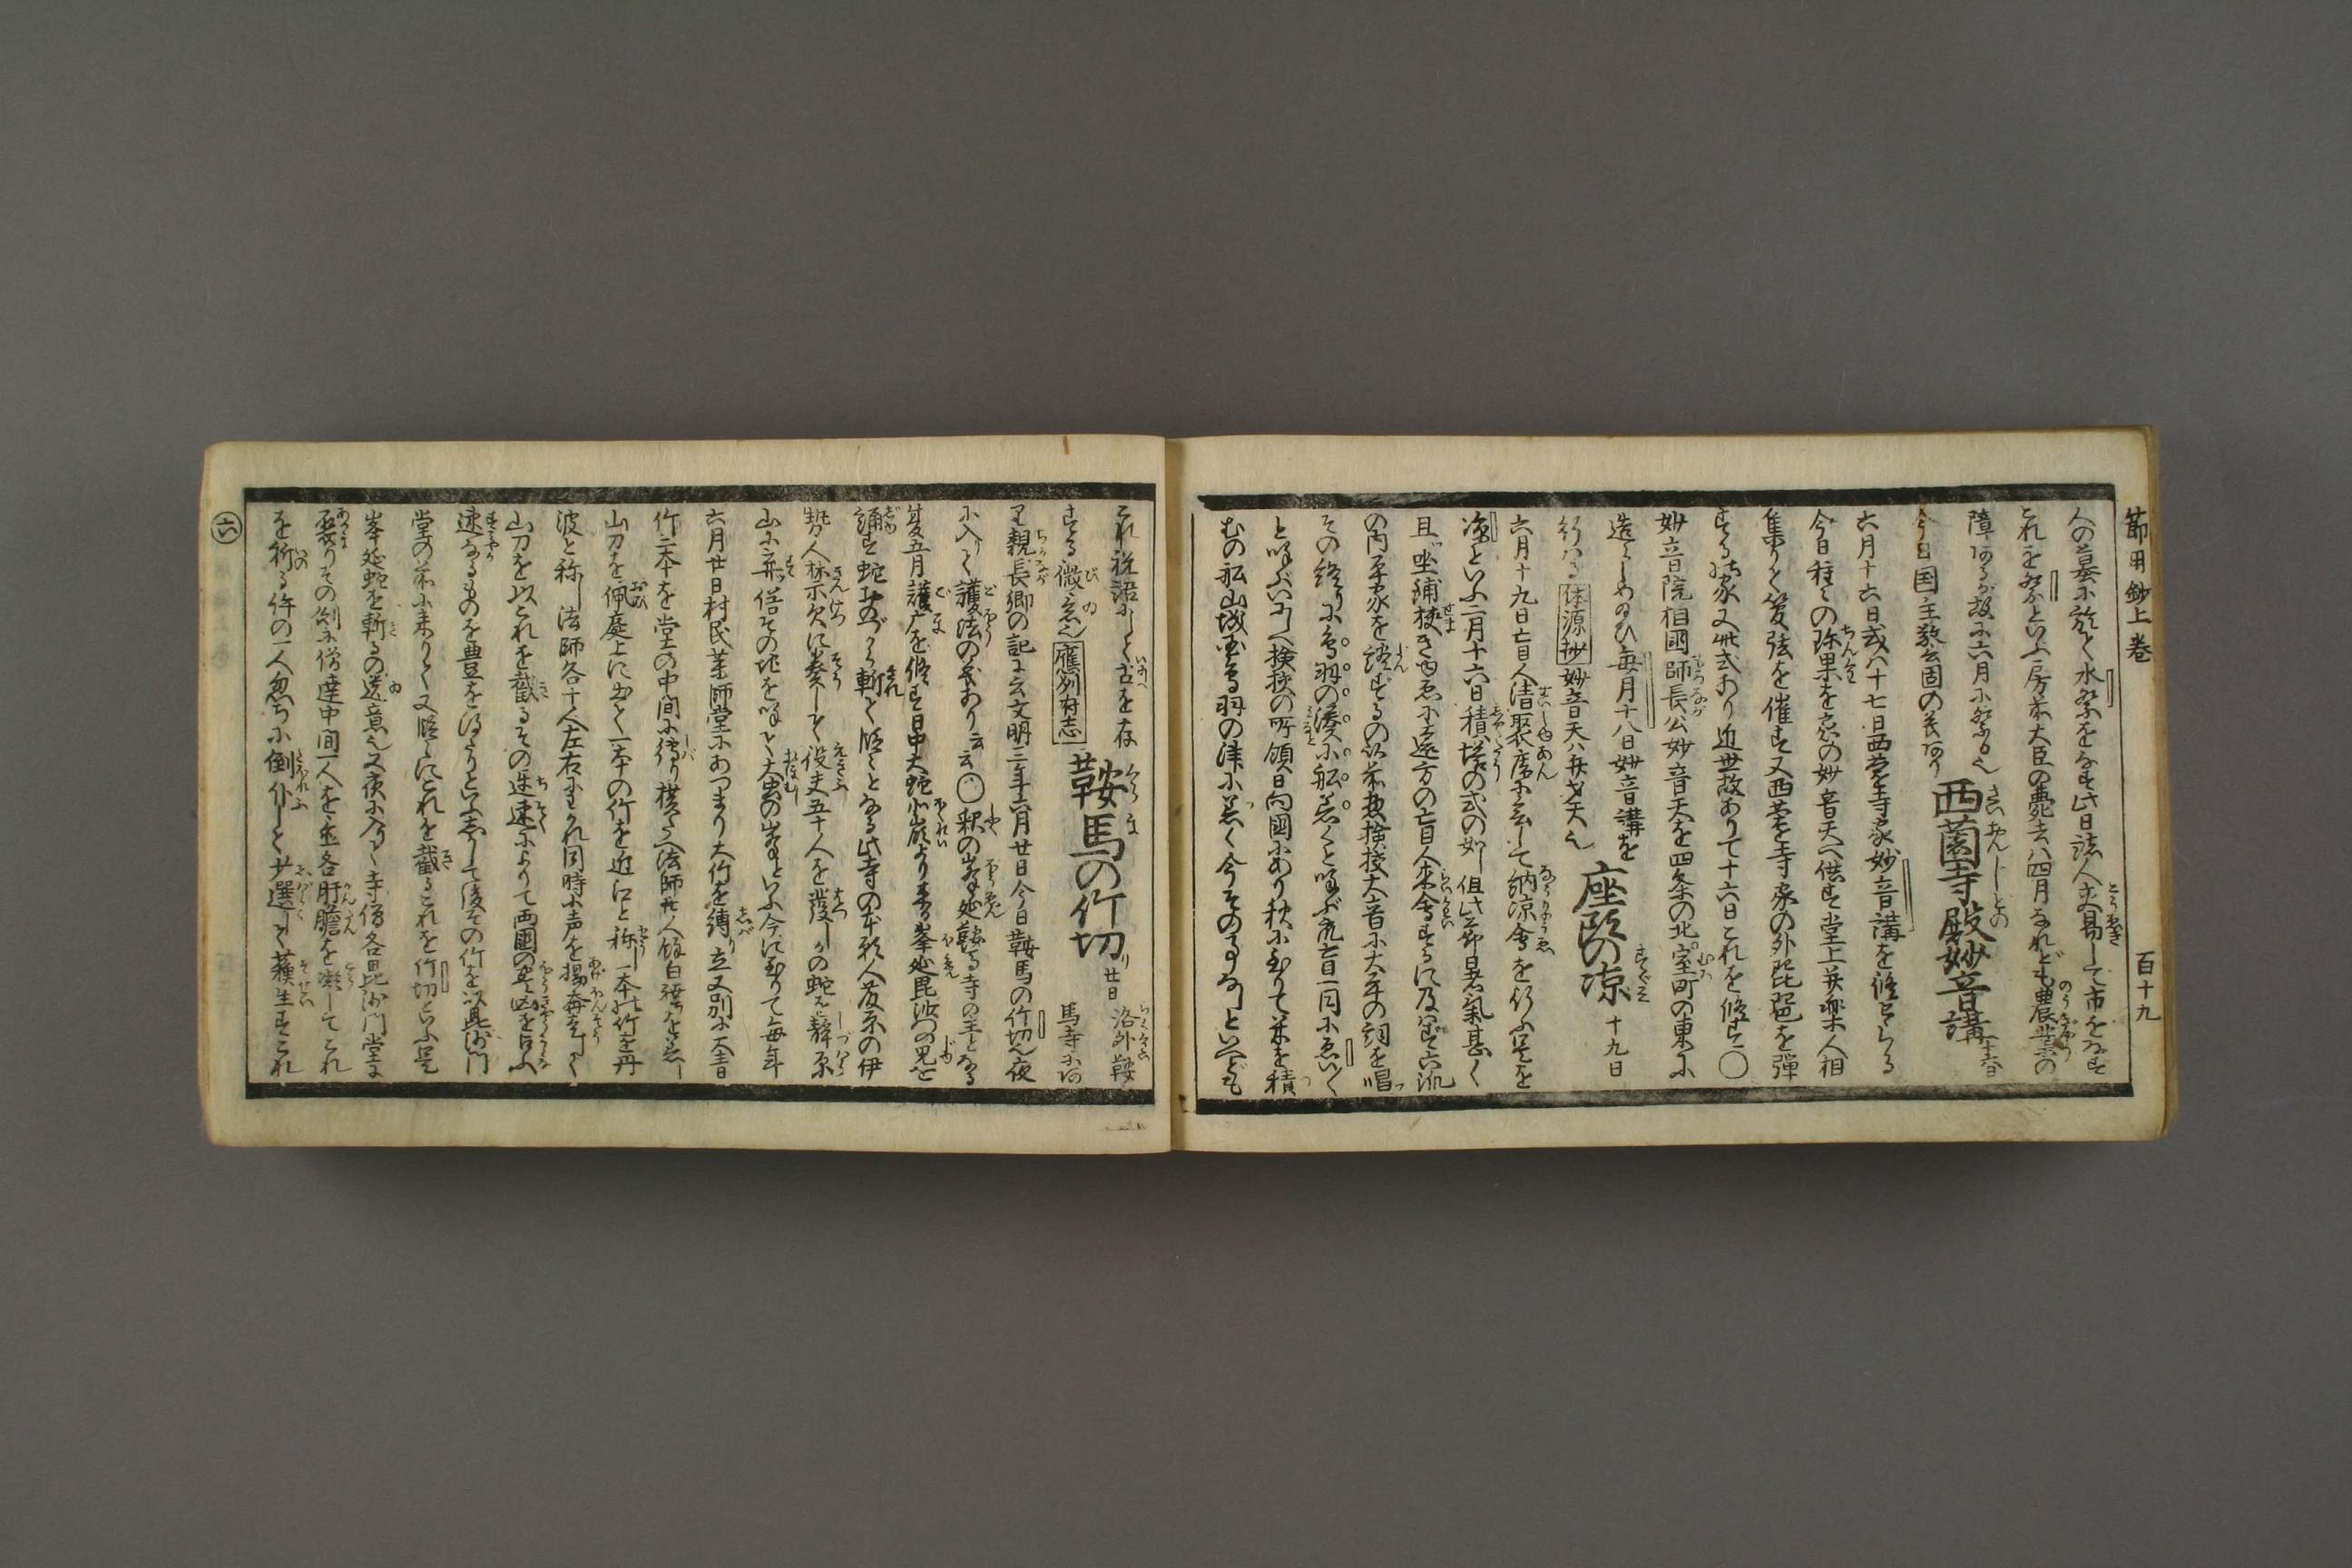 節用鈔上巻 百十九
人の墓に於て水祭をなす此日諸人交易して市をなす
これを祭といふ房前大臣の薨去ハ四月なれども農業の
障あるが故に六月に祭る也
今日国主教公国の
西薗寺殿妙音講
六月十六日或ハ十七日西薗寺家妙音講を修せらる
今日種々の珍果を の妙音天へ供す堂上并楽人相
集りて管弦を催す又西薗寺家の外琵琶を弾
する家又此式あり近世故ありて十六日これを修す○
妙音院相國師長公妙音天を四条の北室町の東に
造らしめ給ひ毎月十八日妙音講を
行ハる体源抄妙音天ハ弁才天也
座頭の涼 十九日
六月十九日亡目人清聚庵に会して納涼会を行ふ是を
涼といふ二月十六日積塔の式の如し但此節暑氣甚く
且座鋪狭きゆゑに遠方の亡目人来会するに及ばず六派
の内平家を談ずるの以前惣検挍大音に大年の詞を唱
その終りに鳥羽の湊に舩着くと呼ぶ衆盲一同にゑいく
と呼ぶいにしへ検挍の所領日向國にあり秋に至りて米を積
むの舩山城国鳥羽の津に着く今その事なしといへども
これ祝語にして古を存
する微意也雍州府志
鞍馬の竹切り 廿日 洛外鞍馬寺にあ
り親長卿の記に云文明二年六月廿日今日鞍馬の竹切也夜
に入りて護法の義あり云云○釈の峯延鞍馬寺の主となる
夏五月護广を修す日中大蛇北嶺より来る峯延毘沙門の呪を
誦す蛇 斬て段々となる此寺の本願人藤原の伊
勢人禁闕に奏して役夫五十人を發しかの蛇を靜原
山に棄つ倍その地を呼て大虫の峯といふ今に至りて毎年
六月廿日村民薬師堂にあつまり大竹を縛り立又別に大青
竹二本を堂の中間に縛り横たへ法師廿人餘白 を着し
山刀を佩庭上に出て一本の竹を近江と称し一本の竹を丹
波と称し法師各十人左右にわかれ同時に声を揚奔走して
山刀を以これを截るその遅速によりて両國の豊凶を占ふ
速なるものを豊を得たりといふ而して後その竹を以毘沙門
堂の前に来りて又段々にこれを截るこれを竹切といふ是
峯延蛇を斬るの遺意也又夜に入りて寺僧各毘沙門堂に
聚りその列に僧達中間一人を坐各肝膽を凝してこれ
を祈る件の一人忽ちに倒仆して少選して蘇生すこれ
六